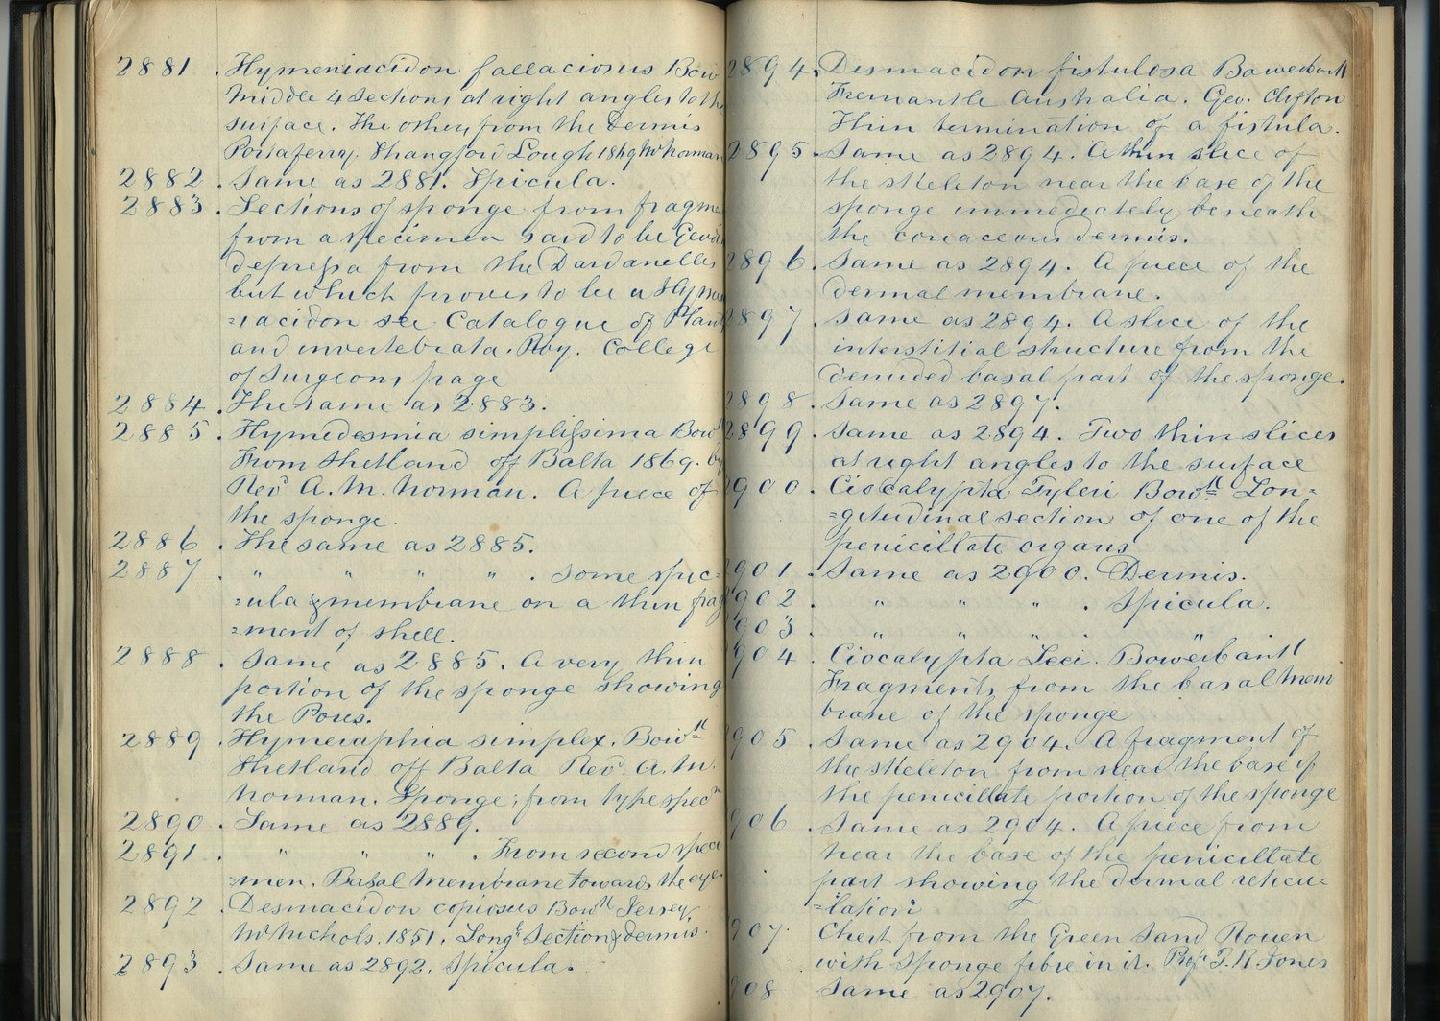 2881. Hymeniacidon fallaciosus Bow
Middle 4 sections at right angles to th
surface. The others from the Dermis
Portaferry. Strangford Lough 1869 Mr Norman
2882. Same as 2881. Spicula.
2883. Sections of sponge from fragme
from a specimen said to be Geod
depressa from the Dardanelles
but which proves to be a Hyme
=iacidon see Catalogue of Plan
and invertebrata. Roy. College
of Surgeons page
2884. The same as 2883.
2885. Hymedesmia simplissima Bow
From Shetland off Balta 1869. by
Revd A. M. Norman. A piece of
the sponge.
2886. The same as 2885.
2887. " " " " . Some spic=
=ula & membrane on a thin frag
=ment of shell.
2888. Same as 2885. A very thin
portion of the sponge showing
the Pores.
2889. Hymeraphia simplex. Bowk
Shetland off Balta Revd A. M.
Norman. Sponge; from type specn
2890. Same as 2889.
2891. " " " . From second speci
=men. Basal Membrane towards the eye.
2892. Desmacidon copiosus Bowk Jersey
Mr Nichols. 1851. Longl Section & dermis.
2893. Same as 2892. Spicula.
2894. Desmacidon fistulosa Bowerbank
Fremantle Australia. Geo. Clifton
Thin termination of a fistula.
2895. Same as 2894. A thin slice of
the skeleton near the base of the
sponge immediately beneath
the coriaceous dermis.
2896. Same as 2894. A piece of the
dermal membrane.
2897. Same as 2894. A slice of the
interstitial structure from the
denuded basal part of the sponge.
2898. Same as 2897.
2899. Same as 2894. Two thin slices
at right angles to the surface
900. Ciocalypta Tyleri Bowk Lon=
=gitudinal section of one of the
penicillate organs
901. Same as 2900. Dermis.
902. " " " . Spicula.
903. " " " . "
904. Ciocalypta Leei. Bowerbank
Fragments from the basal mem
brane of the sponge
905. Same as 2904. A fragment of
the skeleton from near the base of
the penicillate portion of the sponge
906. Same as 2904. A piece from
near the base of the penicillate
part showing the dermal reticu=
=lation
907. Chert from the Green Sand Rouen
with sponge fibre in it. Profr T. R. Jones
908 Same as 2907.